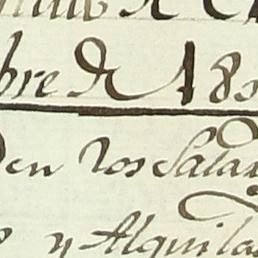 bre de 18
en los Salar
y Alquila